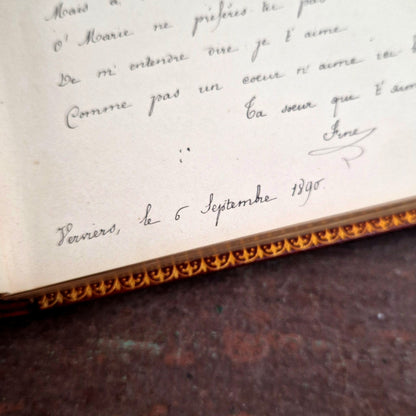 Mais à
O' Marie ne préfères tu pas
De m' entendre dire je t' aime
Comme pas un coeur n' aime ici b
Ta soeur que t' aim
Fine
Verviers, le 6 Septembre 1890.